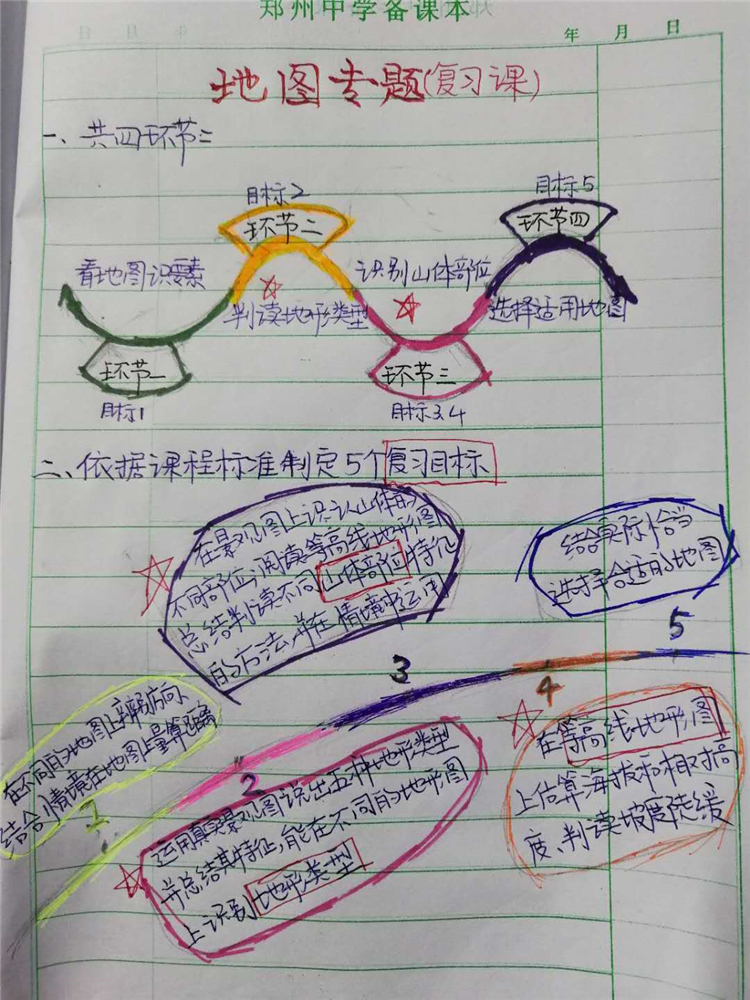 郑州中学备课本
年 月 日
地图专题(复习课)
一、共四环节:
目标2
目标5
环节二
环节四
看地图识要素
识别山体部位
判读地形类型
选择适用地图
环节一
环节三
目标1
目标3.4
二、依据课程标准制定5个复习目标
在景观图上识认山体的
不同部位,阅读等高线地形图
总结判读不同山体部位特征
的方法,并在情境中运用
结合实际恰当
选择合适的地图
5
3
4
在不同的地图上辨别方向、
结合情境在地图上量算距离
1
2
运用真实景观图说出五种地形类型
并总结其特征,能在不同的地形图
上识别地形类型
在等高线地形图
上估算海拔和相对高
度、判读坡度陡缓